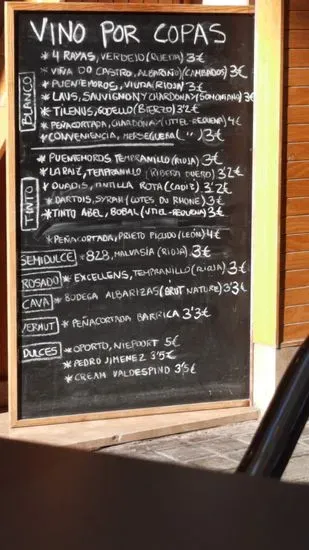 VINO POR COPAS
BLANCO
* 4 RAYAS, VERDEJO (RUEDA) 3€
* VIÑA DO CASTRO, ALBARIÑO (CAMBADOS) 3€
* PUENTEMOROS, VIURA (RIOJA) 3€
* LAUS, SAUVIGNON Y CHARDONAY (SOMONTANO) 3€
* TILENUS, GODELLO (BIERZO) 3'2€
* PEÑACORTADA, CHARDONAY (UTIEL-REQUENA) 4€
* CONVENIENCIA, MERSEGUERA ( " ) 3€
TINTO
* PUENTEMOROS TEMPRANILLO (RIOJA) 3€
* LA RAIZ, TEMPRANILLO (RIBERA DUERO) 3'2€
* QUADIS, TINTILLA ROTA (CADIZ) 3'2€
* DARTOIS, SYRAH (COTES DU RHONE) 3€
* TINTO ABEL, BOBAL (UTIEL-REQUENA) 3€
* PEÑACORTADA, PRIETO PICUDO (LEÓN) 4€
SEMIDULCE * 828, MALVASÍA (RIOJA) 3€
ROSADO * EXCELLENS, TEMPRANILLO (RIOJA) 3€
CAVA * BODEGA ALBARIZAS (BRUT NATURE) 3'3€
VERMUT * PEÑACORTADA BARRICA 3'3€
DULCES * OPORTO, NIEPOORT 5€
* PEDRO JIMENEZ 3'5€
* CREAM VALDESPINO 3'5€